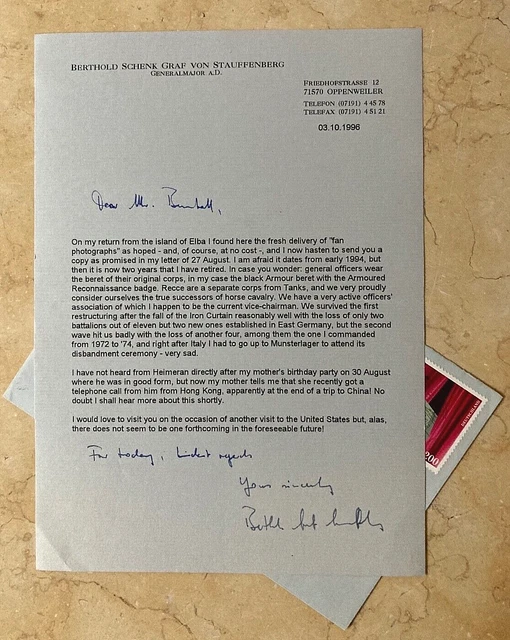 BERTHOLD SCHENK GRAF VON STAUFFENBERG
GENERALMAJOR A.D.
FRIEDHOFSTRASSE 12
71570 OPPENWEILER
TELEFON (07191) 4 45 78
TELEFAX (07191) 4 51 21
03.10.1996
Dear Mr.
On my return from the island of Elba I found here the fresh delivery of "fan
photographs" as hoped - and, of course, at no cost -, and I now hasten to send you a
copy as promised in my letter of 27 August. I am afraid it dates from early 1994, but
then it is now two years that I have retired. In case you wonder: general officers wear
the beret of their original corps, in my case the black Armour beret with the Armoured
Reconnaissance badge. Recce are a separate corps from Tanks, and we very proudly
consider ourselves the true successors of horse cavalry. We have a very active officers'
association of which I happen to be the current vice-chairman. We survived the first
restructuring after the fall of the Iron Curtain reasonably well with the loss of only two
battalions out of eleven but two new ones established in East Germany, but the second
wave hit us badly with the loss of another four, among them the one I commanded
from 1972 to '74, and right after Italy I had to go up to Munsterlager to attend its
disbandment ceremony - very sad.
I have not heard from Heimeran directly after my mother's birthday party on 30 August
where he was in good form, but now my mother tells me that she recently got a
telephone call from him from Hong Kong, apparently at the end of a trip to China! No
doubt I shall hear more about this shortly.
I would love to visit you on the occasion of another visit to the United States but, alas,
there does not seem to be one forthcoming in the foreseeable future!
For today, kindest regards
Yours sincerely
200